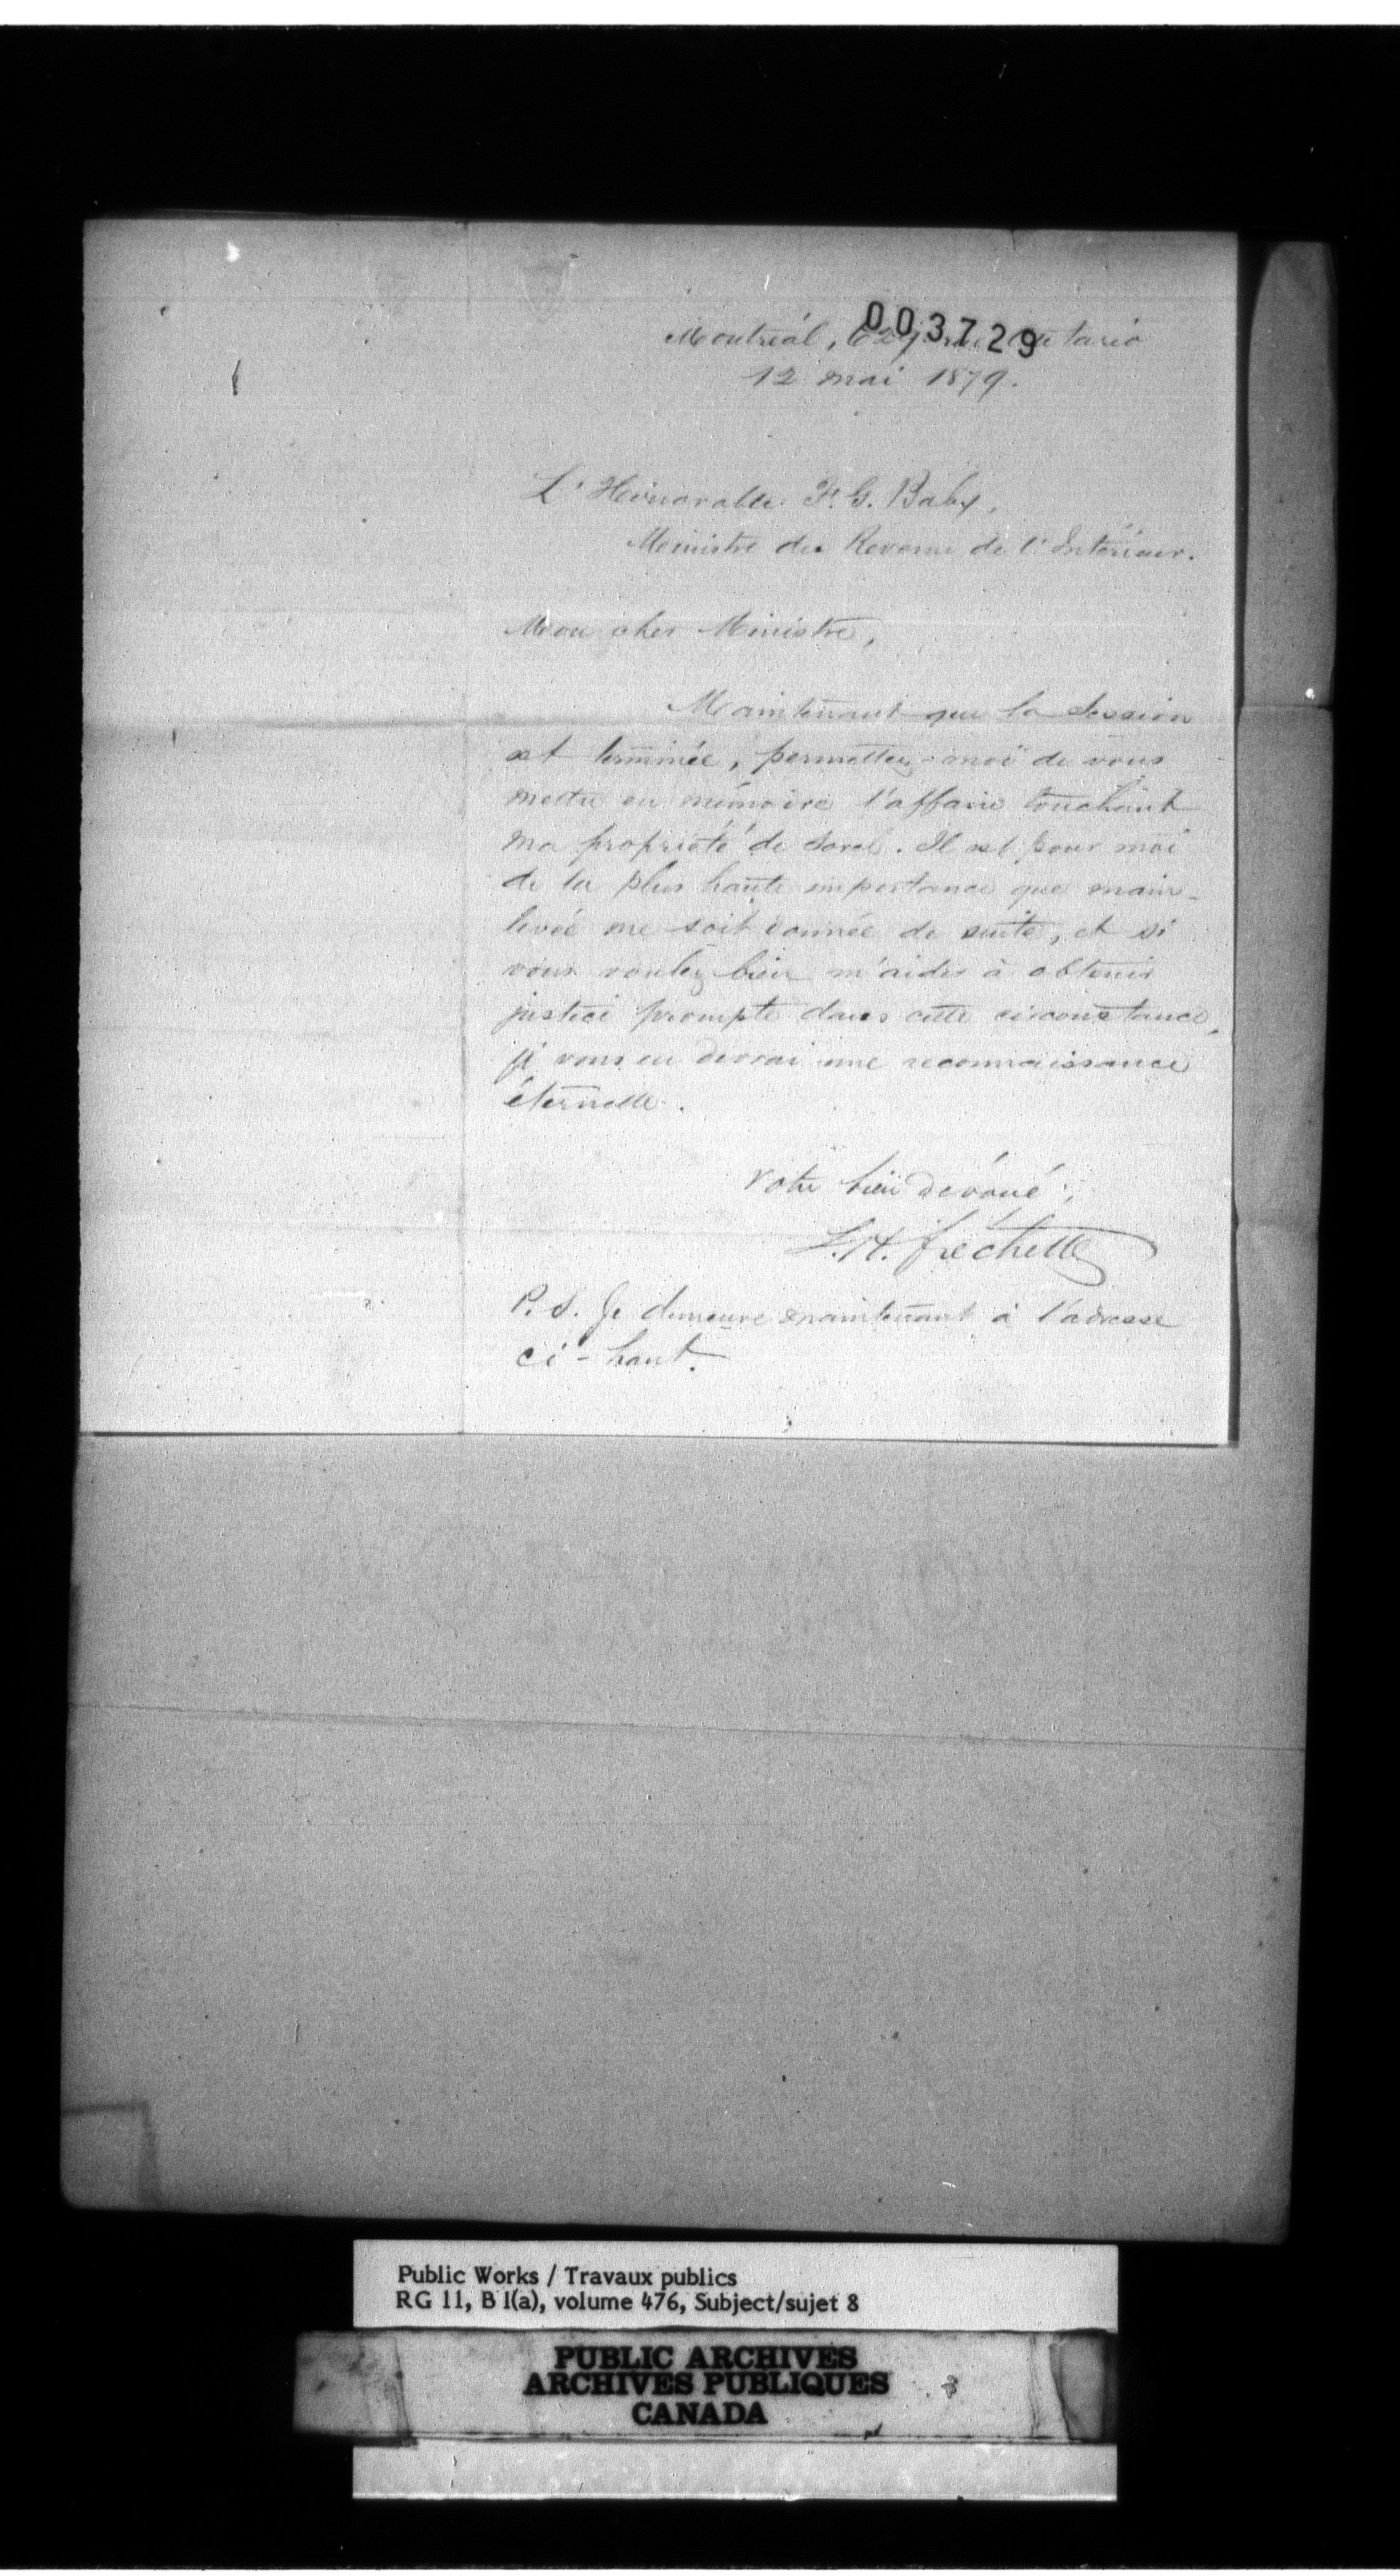 003729
Montréal, 629 rue Ontario
12 mai 1879.
L'Honorable F. G. Baby,
Ministre du Revenu de l'Intérieur.
Mon cher Ministre,
Maintenant que la Session
est terminée, permettez-moi de vous
mettre en mémoire l'affaire touchant
ma propriété de Sorel. Il est pour moi
de la plus haute importance que main-
levée me soit donnée de suite, et si
vous voulez bien m'aider à obtenir
justice prompte dans cette circonstance,
je vous en devrai une reconnaissance
éternelle.
Votre bien dévoué,
L. H. Fréchette
P. S. Je demeure maintenant à l'adresse
ci-haut.
Public Works / Travaux publics
RG 11, B 1(a), volume 476, Subject/sujet 8
PUBLIC ARCHIVES
ARCHIVES PUBLIQUES
CANADA